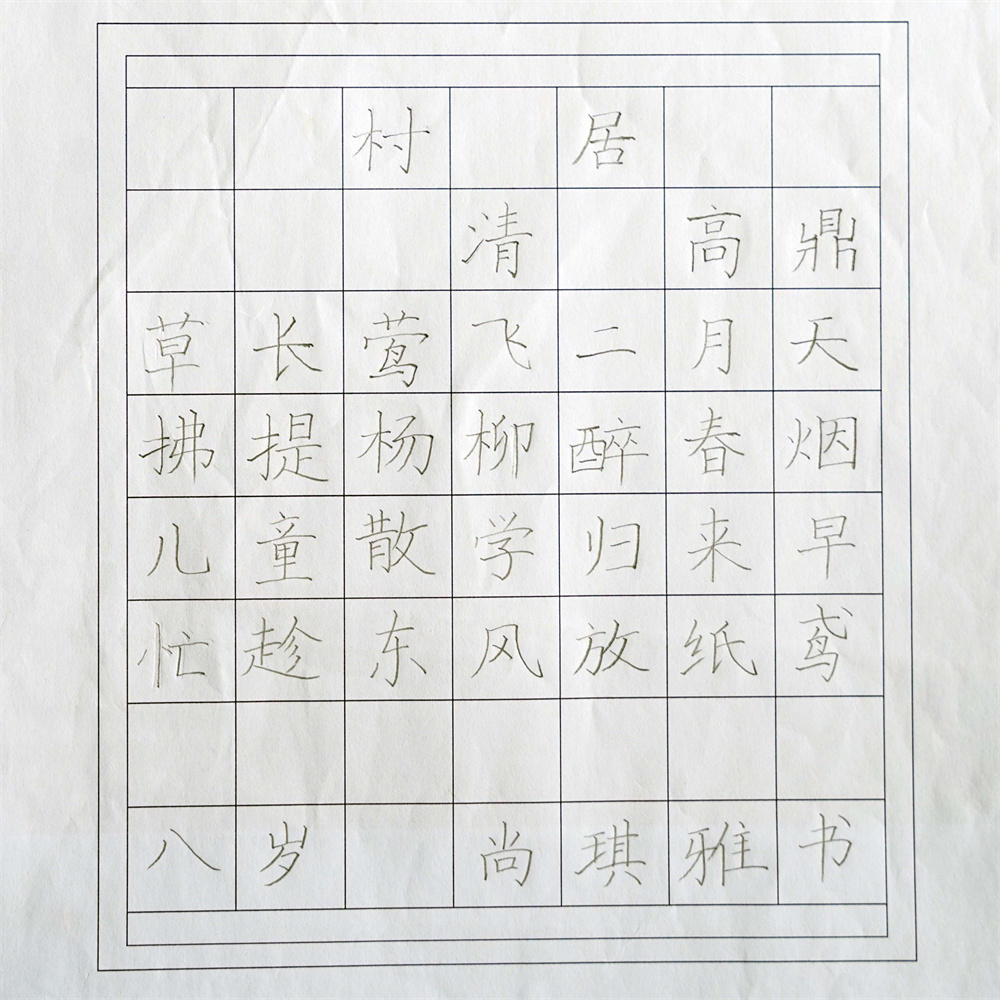 村居
清 高鼎
草长莺飞二月天
拂提杨柳醉春烟
儿童散学归来早
忙趁东风放纸鸢
八岁 尚琪雅书